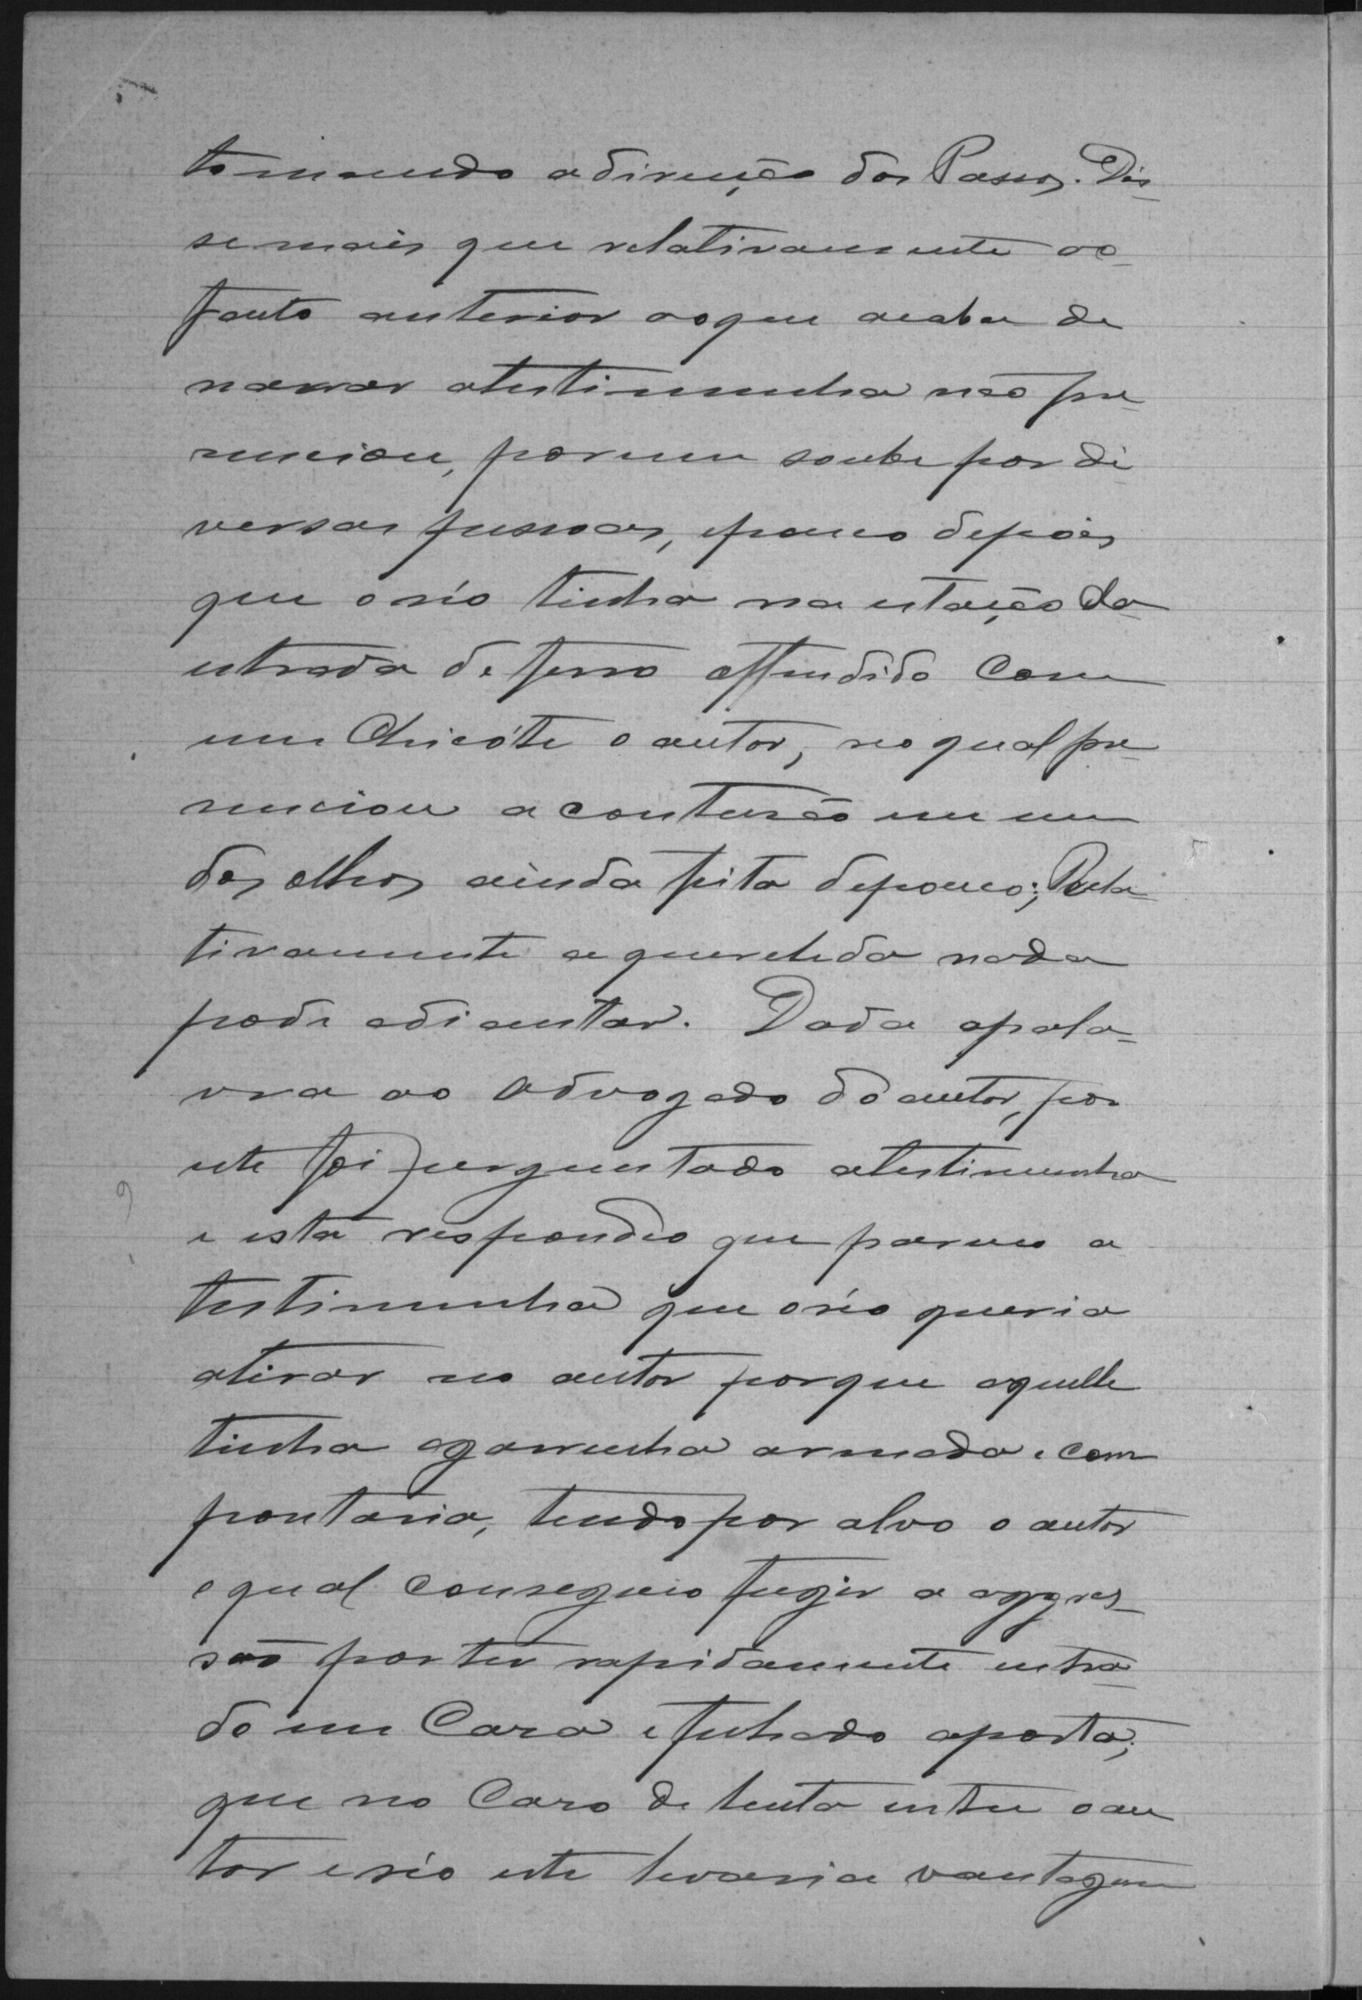 tomando a direcção dos Passos. Dis-
se mais que relativamente ao
facto anterior ao que acaba de
narrar a testimunha não pre-
senciou, porem soube por di
versas pessoas, e pouco depois
que o réo tinha na estação da
estrada de ferro offendido com
um Chicóte o autor, no qual pre-
senciou a contusão em um
dos olhos ainda feita de pouco; Rela-
tivamente a querelada nada
pode adiantar. Dada a pala-
vra ao advogado do autor, por
este foi perguntado a testimunha
e esta respondeo que pareceo a
testimunha que o réo queria
atirar no autor porque aquelle
tinha a garrucha armada e com
pontaria, tendo por alvo o autor
o qual conseguio fugir a aggres-
são por ter rapidamente entra-
do em Casa e fechado a porta;
que no Caso de lucta entre o au
tor e réo este levaria vantagem